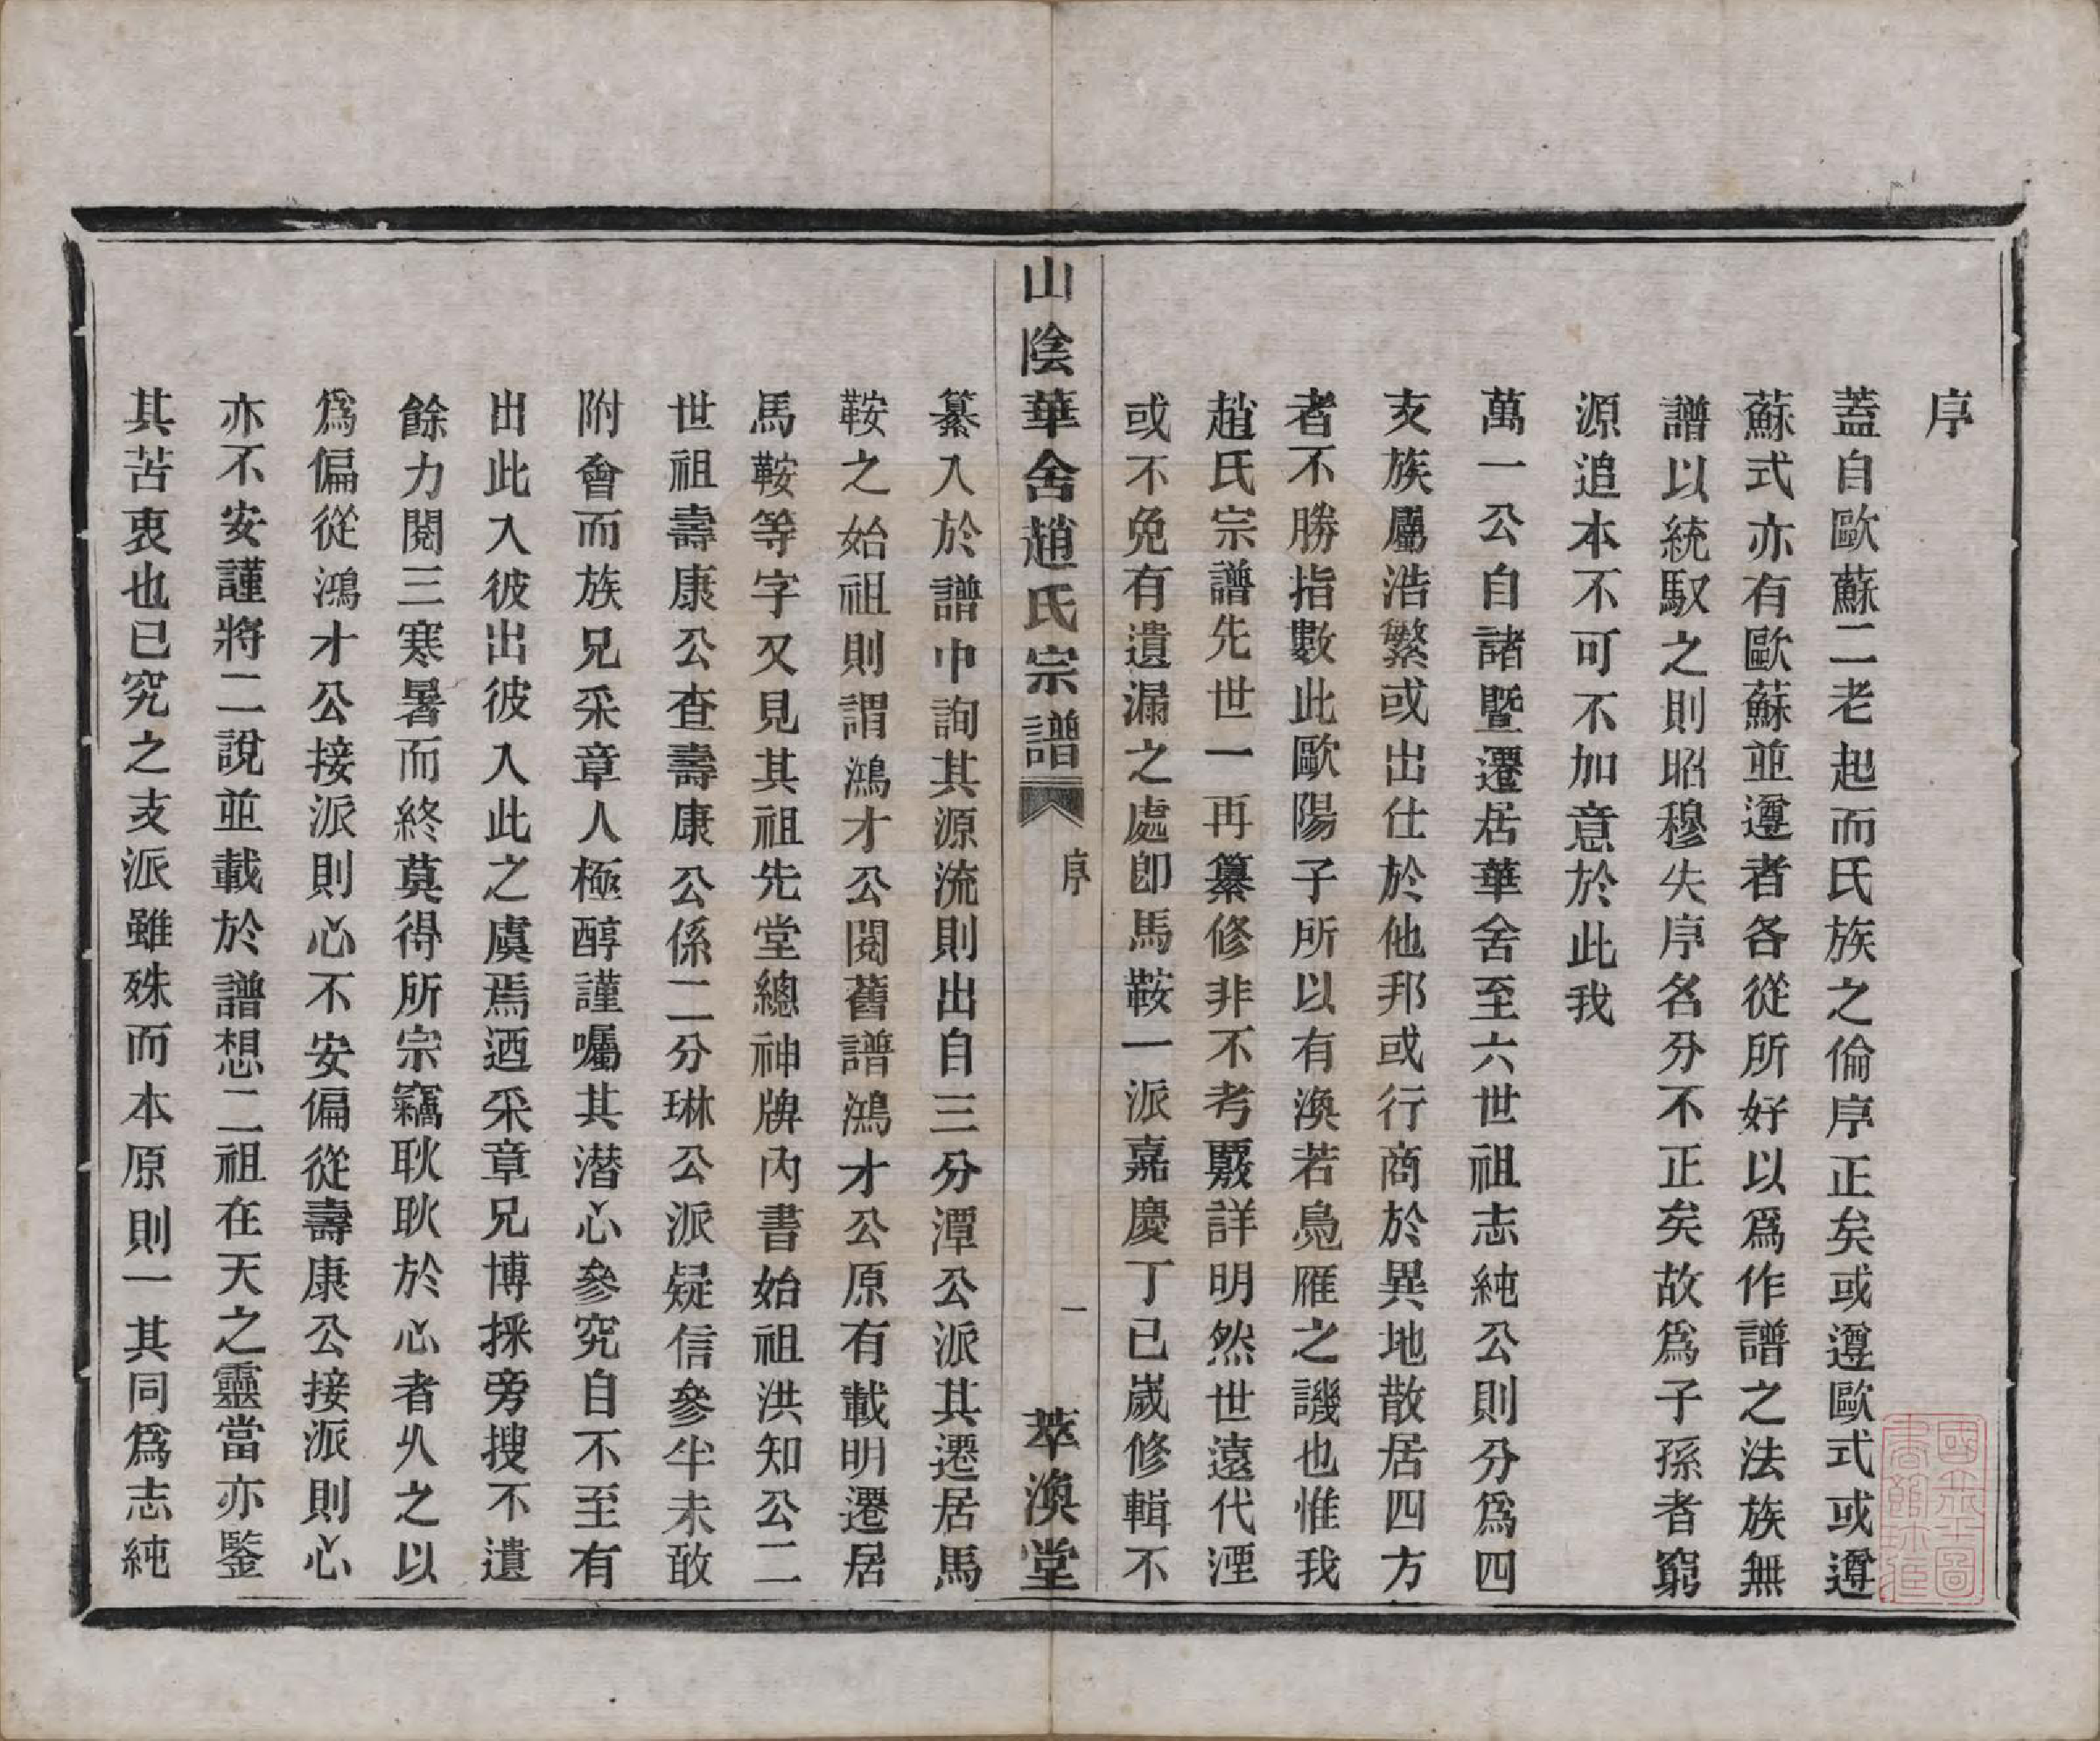 序
蓋自歐蘇二老起而氏族之倫序正矣或遵歐式或遵
蘇式亦有歐蘇並遵者各從所好以爲作譜之法族無
譜以統馭之則昭穆失序名分不正矣故爲子孫者窮
源追本不可不加意於此我
萬一公自諸暨遷居華舍至六世祖志純公則分爲四
支族屬浩繁或出仕於他邦或行商於異地散居四方
者不勝指數此歐陽子所以有渙若鳧雁之譏也惟我
趙氏宗譜先世一再纂修非不考覈詳明然世遠代湮
或不免有遺漏之處卽馬鞍一派嘉慶丁巳歲修輯不
山陰華舍趙氏宗譜
序
一
萃渙堂
纂入於譜中詢其源流則出自三分潭公派其遷居馬
鞍之始祖則謂鴻才公閱舊譜鴻才公原有載明遷居
馬鞍等字又見其祖先堂總神牌內書始祖洪知公二
世祖壽康公查壽康公係二分琳公派疑信參半未敢
附會而族兄采章人極醇謹囑其潛心參究自不至有
出此入彼出彼入此之虞焉迺采章兄博採旁搜不遺
餘力閱三寒暑而終莫得所宗竊耿耿於心者久之以
爲偏從鴻才公接派則心不安偏從壽康公接派則心
亦不安謹將二說並載於譜想二祖在天之靈當亦鑒
其苦衷也已究之支派雖殊而本原則一其同爲志純
國立北平圖
書館珍藏